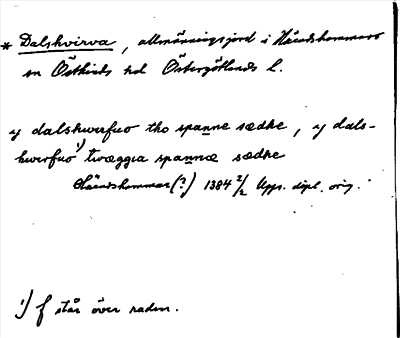 * Dalshvirva, allmänningsjord i Häradshammars
sn Östkinds hd Östergötlands l.
y dalshwerfuo tho spanne sædhe, y dals-
hwerfuo 1) twæggia spannæ sædhe
Häradshammar (?) 1384 2/2 Upps. dipl. orig.
1) f står över raden.